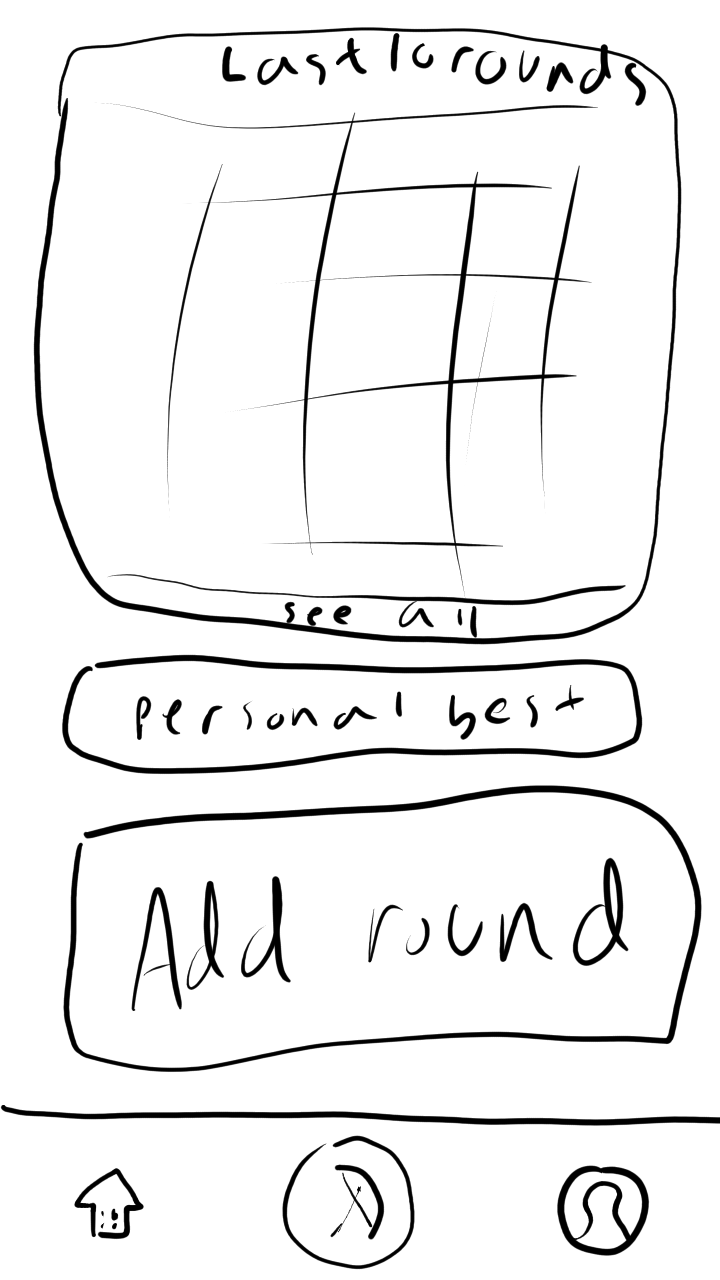 Last 10 rounds
see all
personal best
Add round